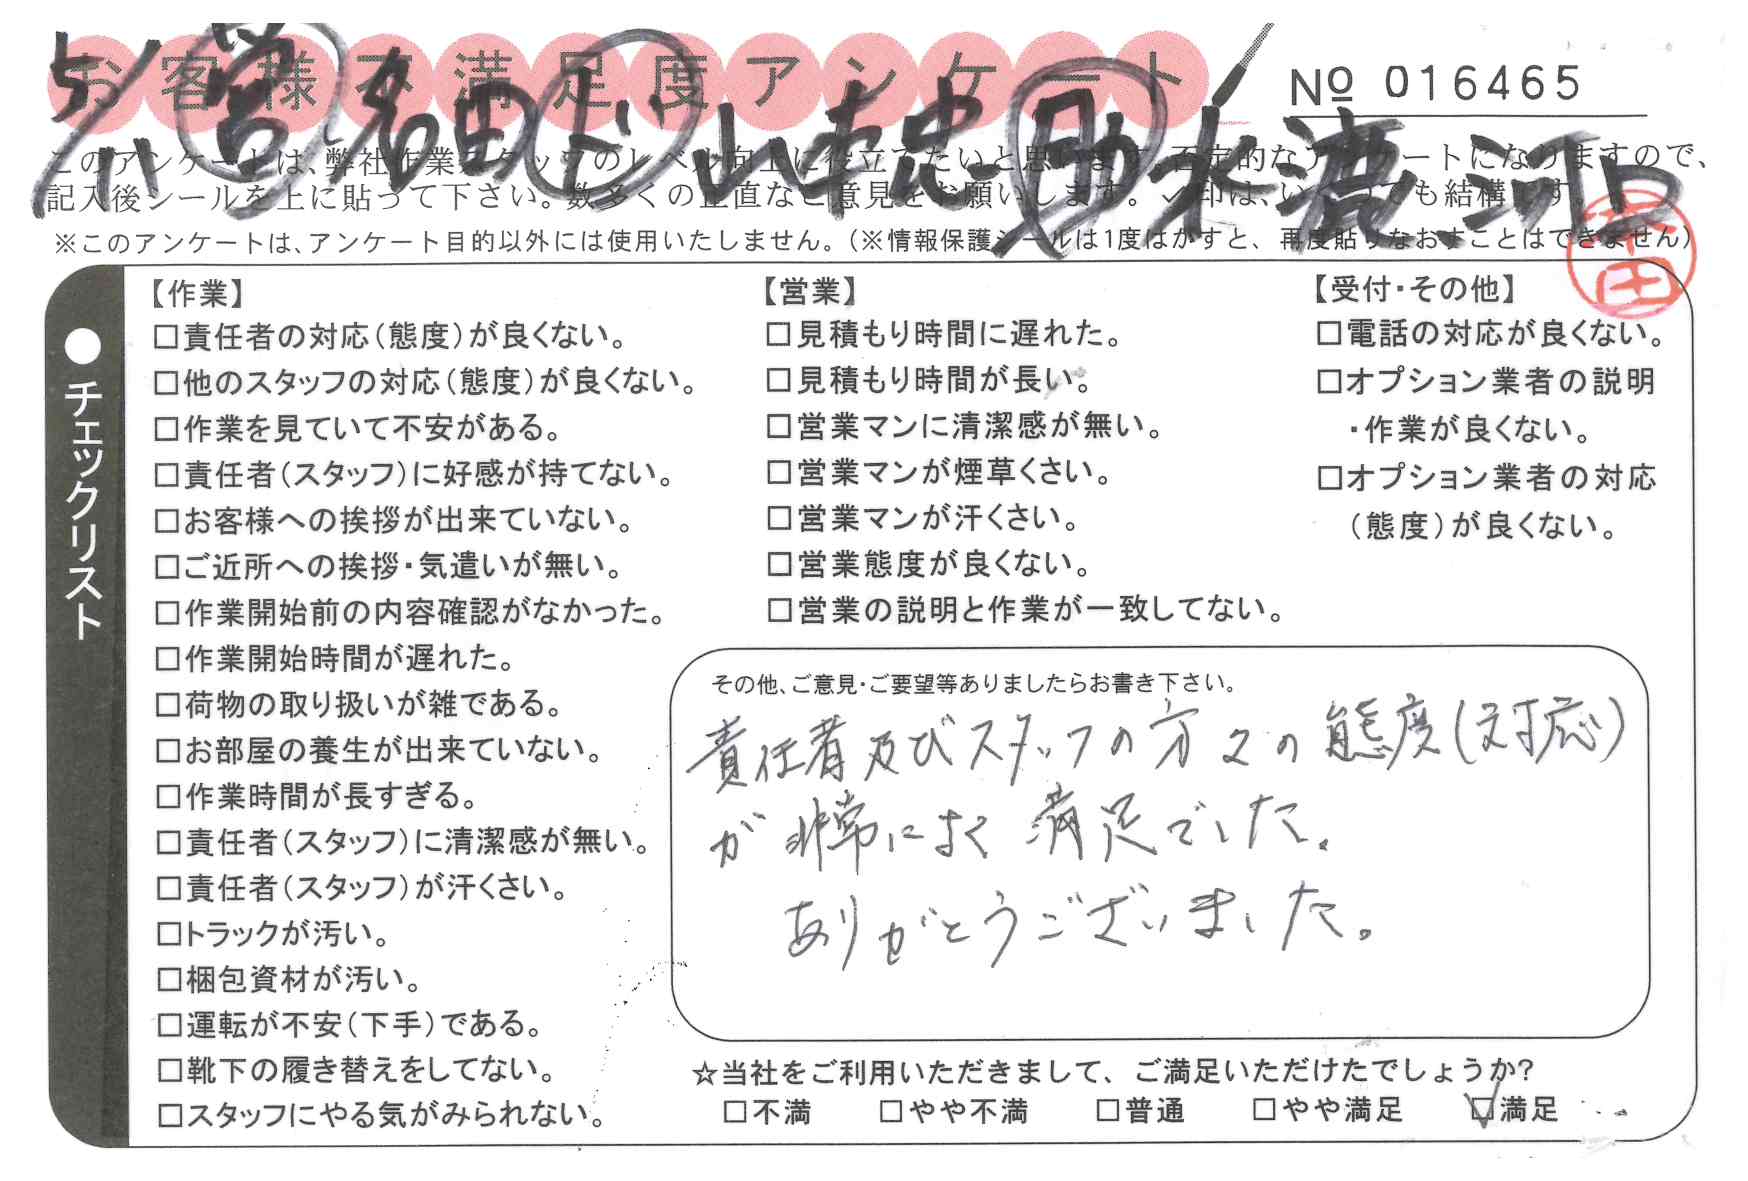 お客様不満足度アンケート
№ 016465
5/11 営 名畑 ド 山本忠 助 水濃、河口
このアンケートは、弊社作業スタッフのレベル向上に役立てたいと思います。否定的なアンケートになりますので、
記入後シールを上に貼って下さい。数多くの正直なご意見をお願いします。✓印は、いくつでも結構です。
※このアンケートは、アンケート目的以外には使用いたしません。(※情報保護シールは1度はがすと、再度貼りなおすことはできません)
●チェックリスト
【作業】
□責任者の対応(態度)が良くない。
□他のスタッフの対応(態度)が良くない。
□作業を見ていて不安がある。
□責任者(スタッフ)に好感が持てない。
□お客様への挨拶が出来ていない。
□ご近所への挨拶・気遣いが無い。
□作業開始前の内容確認がなかった。
□作業開始時間が遅れた。
□荷物の取り扱いが雑である。
□お部屋の養生が出来ていない。
□作業時間が長すぎる。
□責任者(スタッフ)に清潔感が無い。
□責任者(スタッフ)が汗くさい。
□トラックが汚い。
□梱包資材が汚い。
□運転が不安(下手)である。
□靴下の履き替えをしてない。
□スタッフにやる気がみられない。
【営業】
□見積もり時間に遅れた。
□見積もり時間が長い。
□営業マンに清潔感が無い。
□営業マンが煙草くさい。
□営業マンが汗くさい。
□営業態度が良くない。
□営業の説明と作業が一致してない。
【受付・その他】
□電話の対応が良くない。
□オプション業者の説明
・作業が良くない。
□オプション業者の対応
(態度)が良くない。
その他、ご意見・ご要望等ありましたらお書き下さい。
責任者及びスタッフの方々の態度(対応)
が非常によく満足でした。
ありがとうございました。
☆当社をご利用いただきまして、ご満足いただけたでしょうか?
□不満 □やや不満 □普通 □やや満足 ☑満足